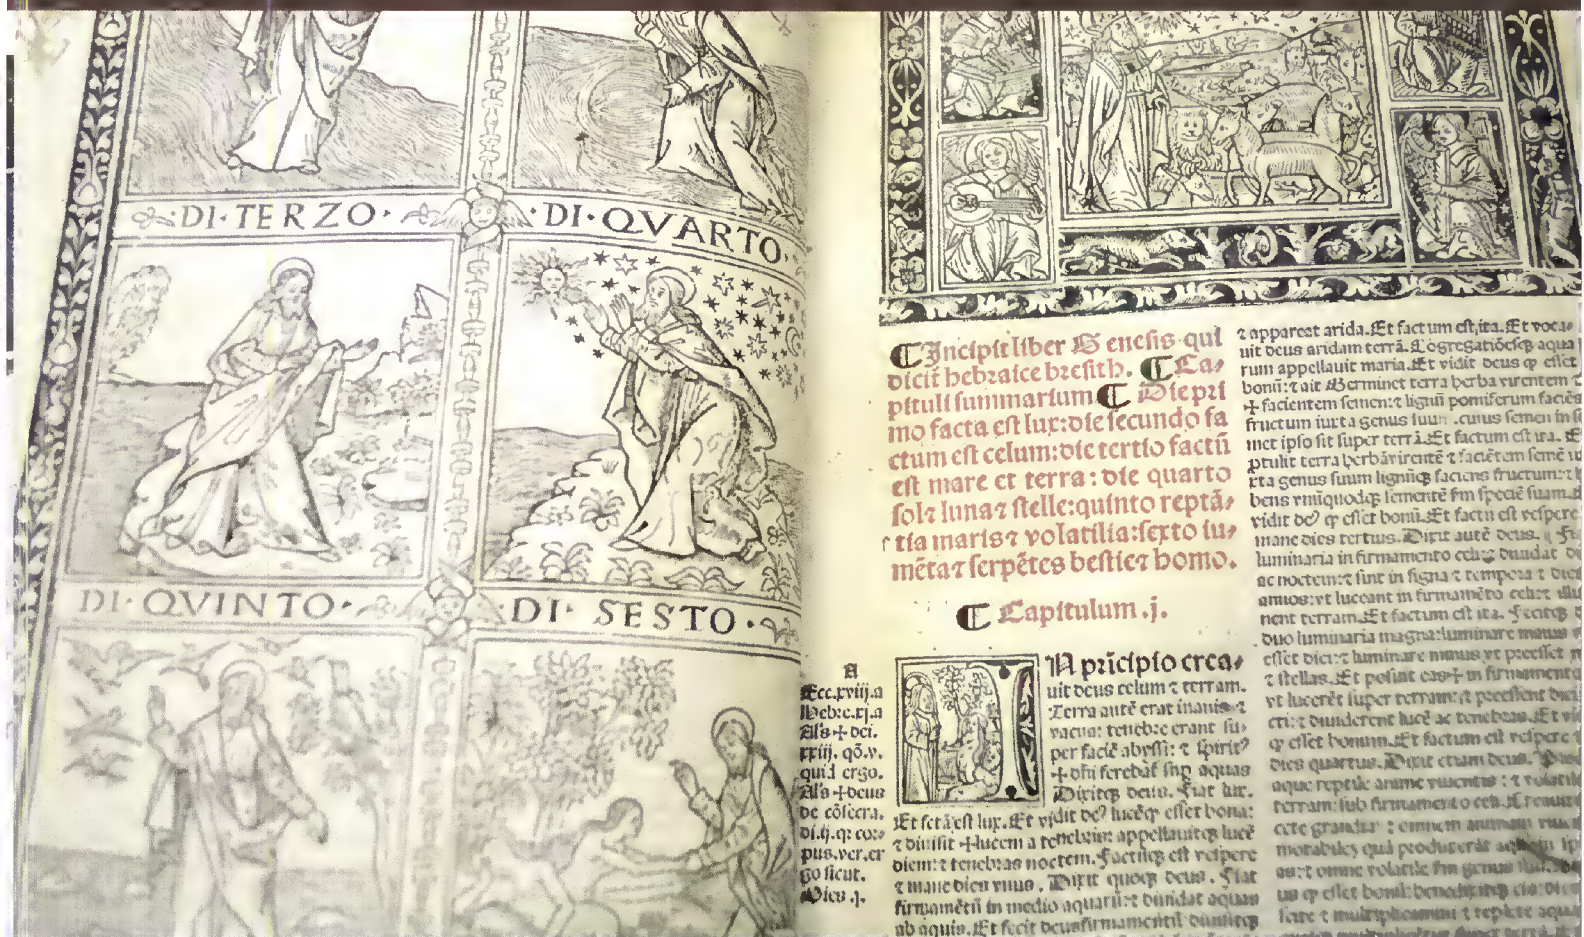 ·DI·TERZO·
·DI·QVARTO·
DI·QVINTO·
·DI·SESTO·
¶Incipit liber Genesis qui
dicit̄ hebraice bresith. ¶Ca⸗
pituli summarium ¶ Die pri
mo facta est lux:die secundo fa
ctum est celum:die tertio factū
est mare et terra: die quarto
sol⁊ luna⁊ stelle:quinto reptā⸗
tia maris⁊ volatilia:sexto iu⸗
mēta⁊ serpētes bestie⁊ homo.
¶ Capitulum .j.
A
Ecc.xviij.a
Hebre.xj.a
Al's + dei.
xxiij. qō.v.
quid ergo.
Al's + deus
de cōsecra.
di.ij.q: cor⸗
pus.ver.er
go sicut.
Dies .j.
IN prīcipio crea⸗
uit deus celum ⁊ terram.
Terra autē erat inanis ⁊
vacua: tenebre erant su⸗
per faciē abyssi: ⁊ spirit⁹
+ dn̄i ferebat̄ sup̄ aquas
Dixitqꝫ deus. Fiat lux.
Et fctā est lux. Et vidit de⁹ lucē ꝙ esset bona:
⁊ diuisit + lucem a tenebris: appellauitqꝫ lucē
diem:⁊ tenebras noctem. Factūqꝫ est vespere
⁊ mane dies vnus . Dixit quoqꝫ deus . Fiat
firmamētū in medio aquarū:⁊ diuidat aquas
ab aquis. Et fecit deus firmamentū diuisitqꝫ
⁊ appareat arida. Et factum est,ita. Et voca⸗
uit deus aridam terrā. Cōgregatiōesqꝫ aqua
rum appellauit maria. Et vidit deus ꝙ esset
bonū:⁊ ait Germinet terra herbā virentem ⁊
+ facientem semen:⁊ lignū pomiferum faciēs
fructum iuxta genus suum .cuius semen in se
met ipso sit super terrā. Et factum est ita. Et
ꝓtulit terra herbā virentē ⁊ faciētem semē
xta genus suum lignūqꝫ faciens fructum:⁊
bens vnūquodqꝫ sementē fm speciē suam.
vidit de⁹ ꝙ esset bonū. Et factū est vespere
mane dies tertius. Dixit autē deus.
luminaria in firmamento celi:⁊ diuidat
ac noctem:⁊ sint in signa ⁊ tempora ⁊ dies
annos:vt luceant in firmamēto celi:⁊
nent terram. Et factum est ita. Fecitqꝫ
duo luminaria magna:luminare maius
esset diei:⁊ luminare minus vt preesset
⁊ stellas. Et posuit eas + in firmamento
vt lucerēt super terram:⁊ preessent diei
cti:⁊ diuiderent lucē ac tenebras. Et
ꝙ esset bonum. Et factum est vespere
dies quartus. Dixit etiam deus.
aque reptile anime viuentis : ⁊ volatile
terram: sub firmamento celi.
cete grandia: ⁊ omnem animam
motabilē quā produxerāt
aū:⁊ omne volatile fm genus
us ꝙ esset bonū: benedixitqꝫ
scite ⁊ multiplicamini ⁊ replete aquas